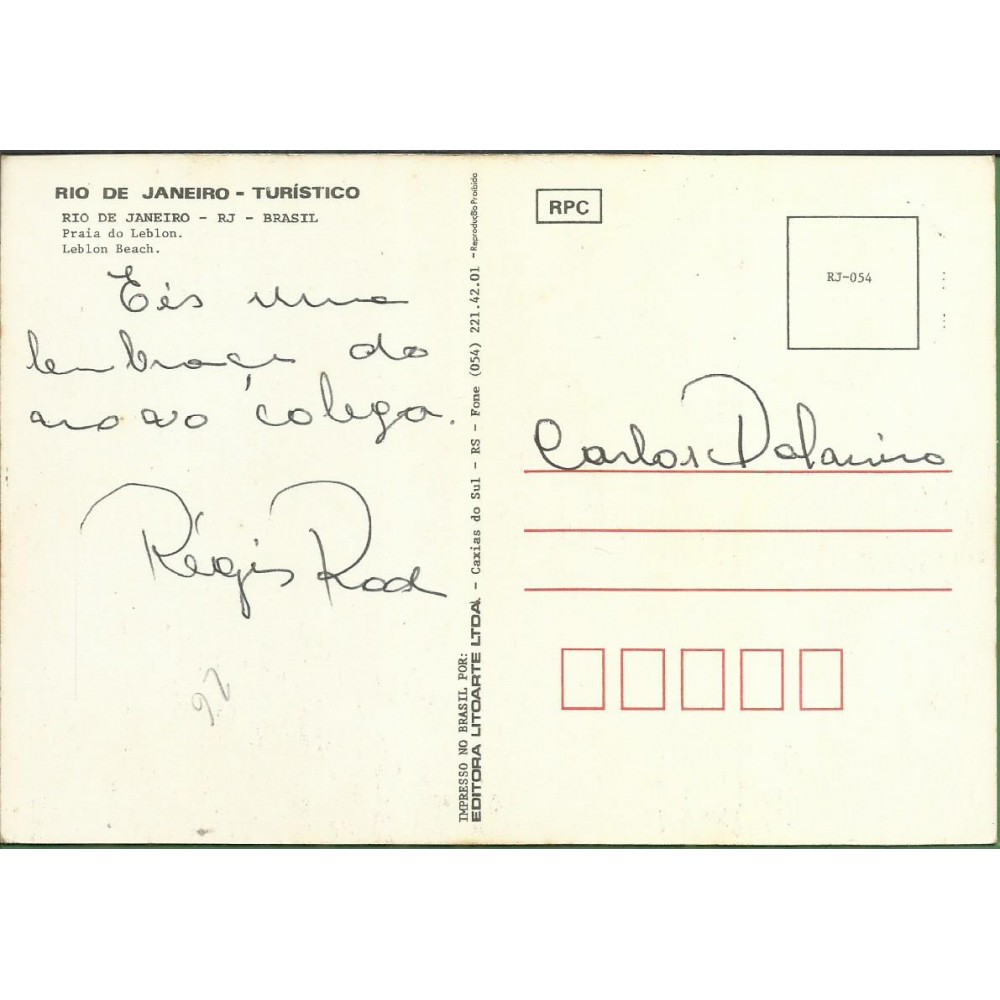 RIO DE JANEIRO - TURÍSTICO
RIO DE JANEIRO - RJ - BRASIL
Praia do Leblon.
Leblon Beach.
Eis uma
lembrança do
novo colega.
Régis Rod
IMPRESSO NO BRASIL POR:
EDITORA LITOARTE LTDA. - Caxias do Sul - RS - Fone (054) 221.42.01 - Reprodução Proibida
RPC
RJ-054
Carlos